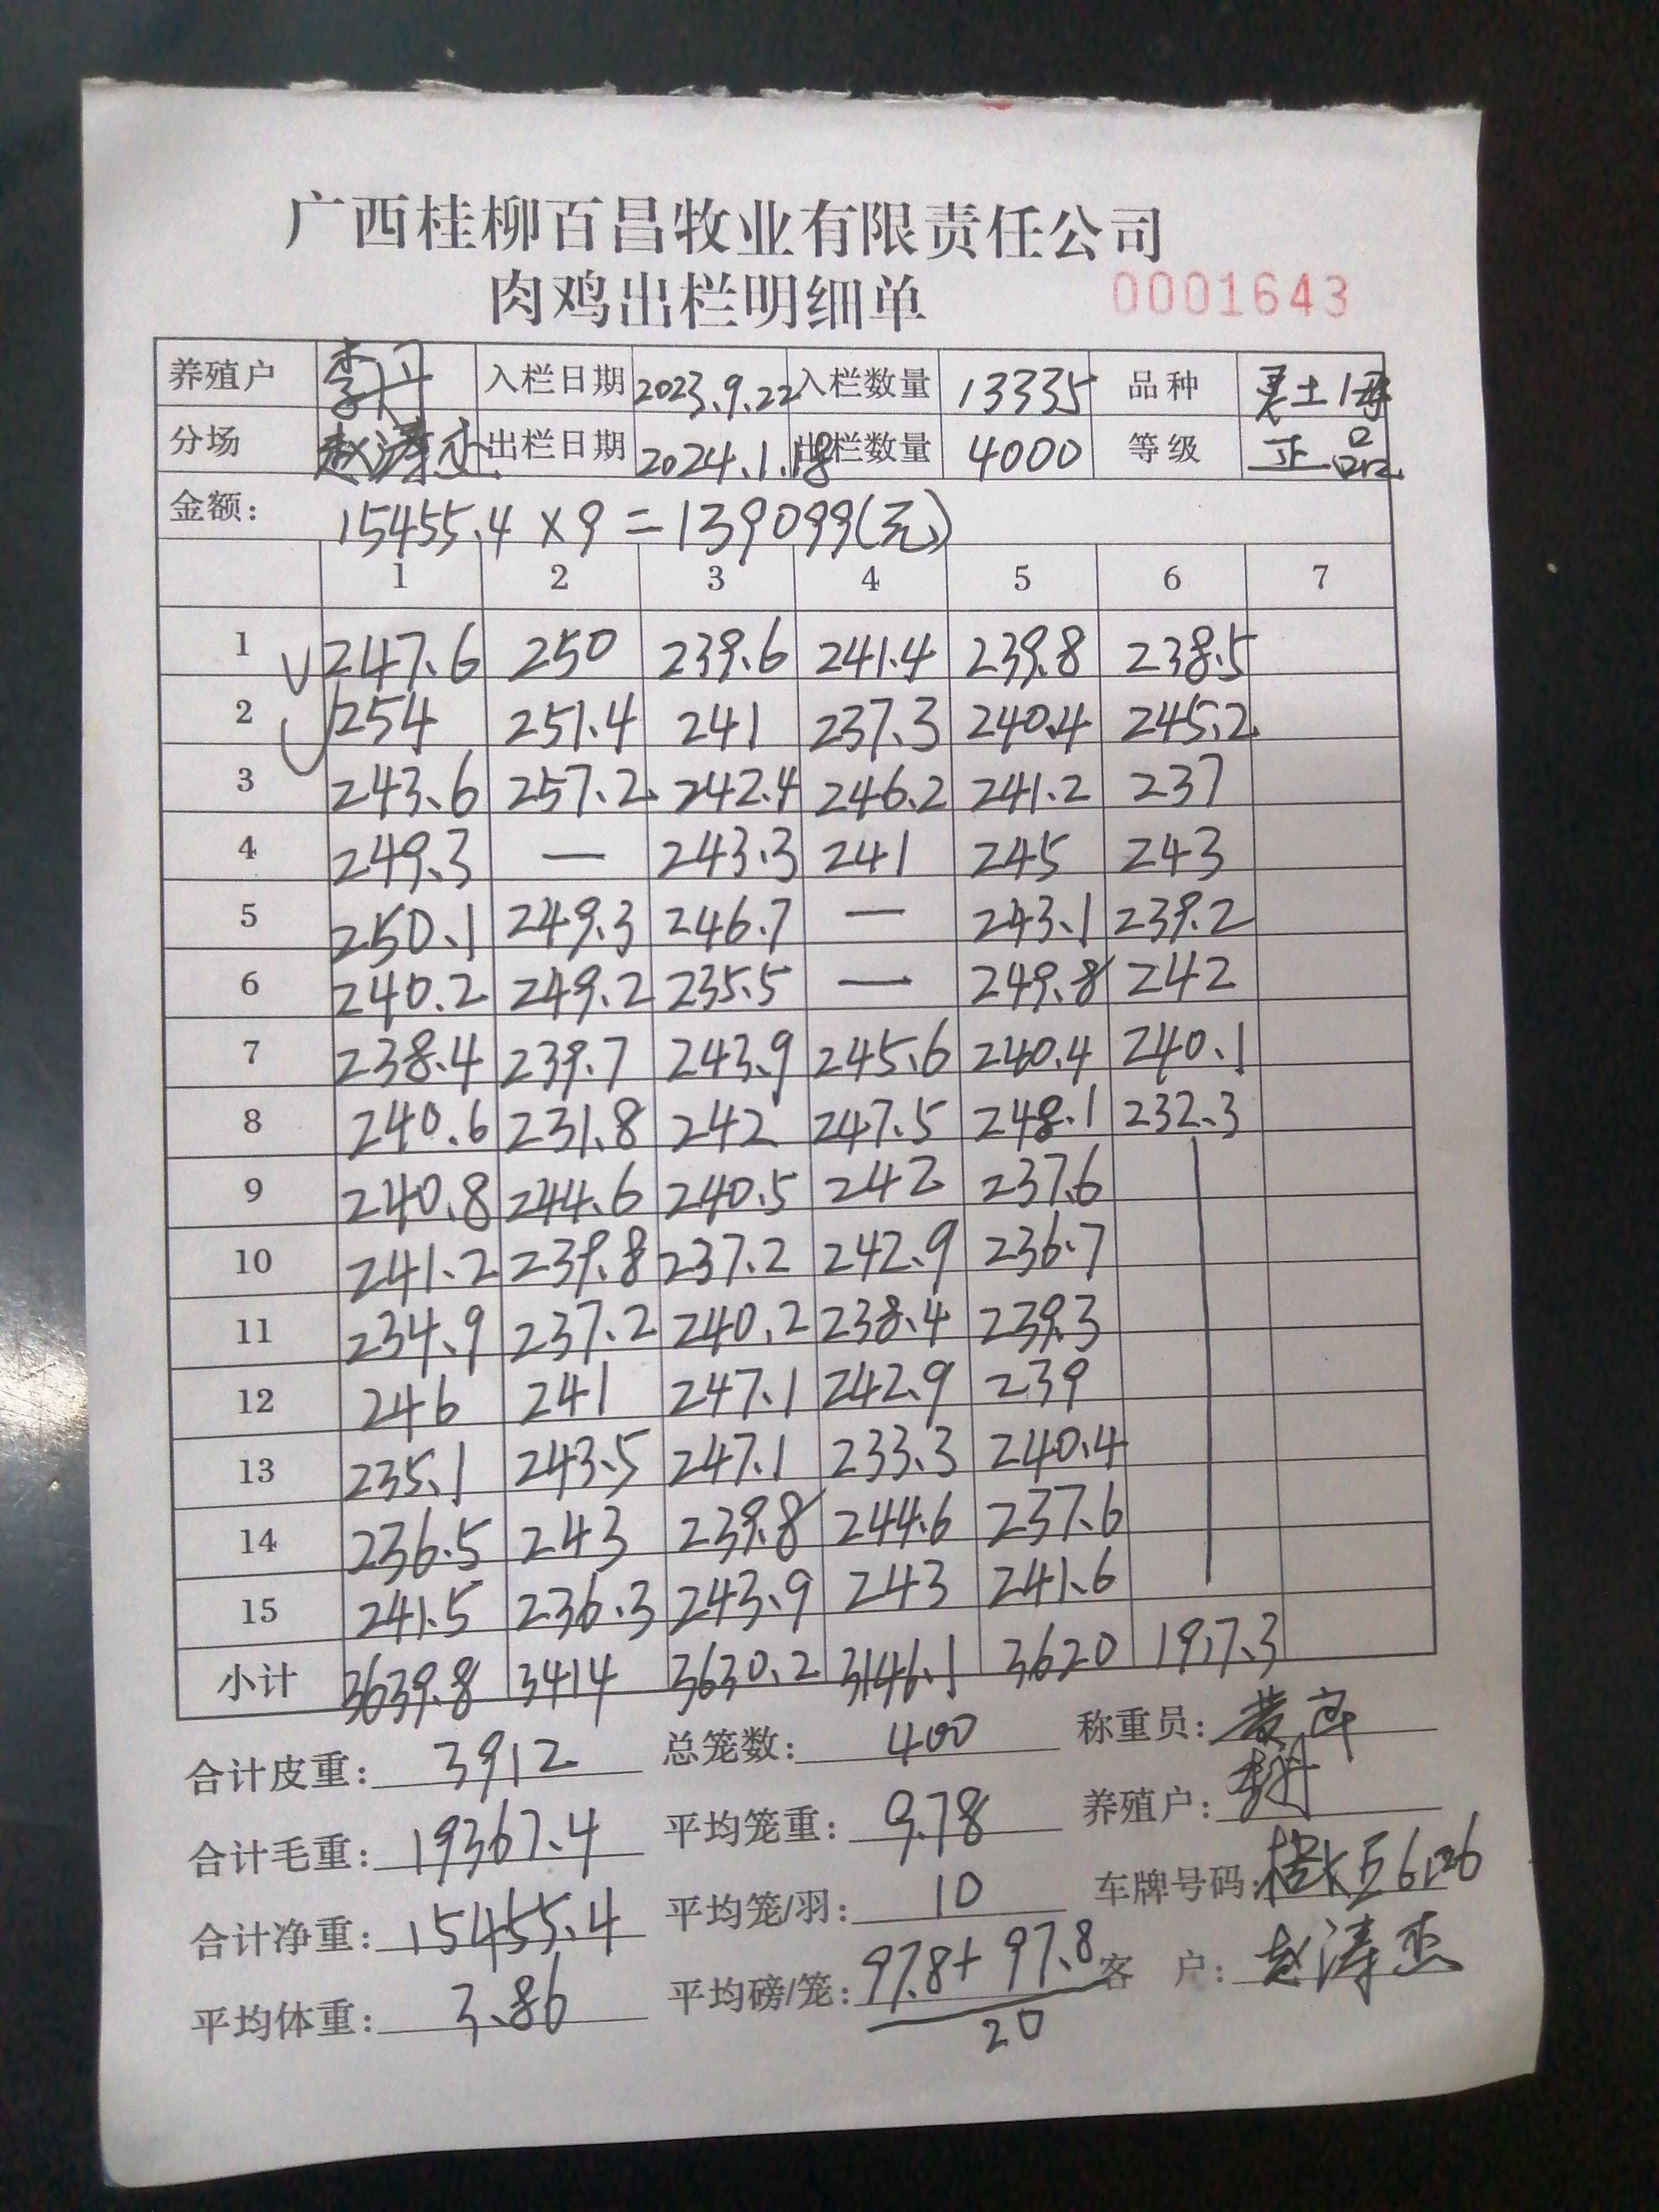 广西桂柳百昌牧业有限责任公司
肉鸡出栏明细单 0001643
养殖户 李丹 入栏日期 2023.9.22 入栏数量 13335 品种 土1号
分场 赵涛杰 出栏日期 2024.1.18 出栏数量 4000 等级 正品
金额: 15455.4×9=139099(元)
1 2 3 4 5 6 7
1 247.6 250 239.6 241.4 239.8 238.5
2 254 251.4 241 237.3 240.4 245.2
3 243.6 257.2 242.4 246.2 241.2 237
4 249.3 — 243.3 241 245 243
5 250.1 249.3 246.7 — 243.1 239.2
6 240.2 249.2 235.5 — 249.8 242
7 238.4 239.7 243.9 245.6 240.4 240.1
8 240.6 231.8 242 247.5 248.1 232.3
9 240.8 244.6 240.5 242 237.6
10 241.2 239.8 237.2 242.9 236.7
11 234.9 237.2 240.2 238.4 239.3
12 246 241 247.1 242.9 239
13 235.1 243.5 247.1 233.3 240.4
14 236.5 243 239.8 244.6 237.6
15 241.5 236.3 243.9 243 241.6
小计 3639.8 3414 3630.2 3146.1 3620 1917.3
合计皮重: 3912 总笼数: 400 称重员:
合计毛重: 19367.4 平均笼重: 9.78 养殖户: 李丹
合计净重: 15455.4 平均笼/羽: 10 车牌号码:
平均体重: 3.86 平均磅/笼: 97.8+97.8 客 户: 赵涛杰
20